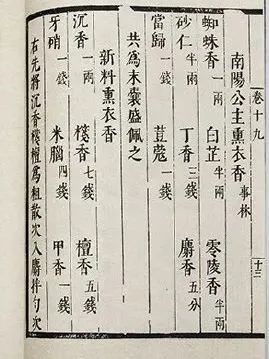 卷十九 十三
南陽公主熏衣香 事林
蜘蛛香一兩 白芷半兩 零陵香半兩
砂仁半兩 丁香三錢 麝香五分
當歸一錢 荳蔻一錢
共為末囊盛佩之
新料熏衣香
沉香一兩 棧香七錢 檀香五錢
牙硝一錢 米腦四錢 甲香一錢
右先將沉香棧檀為粗散次入麝拌勻次